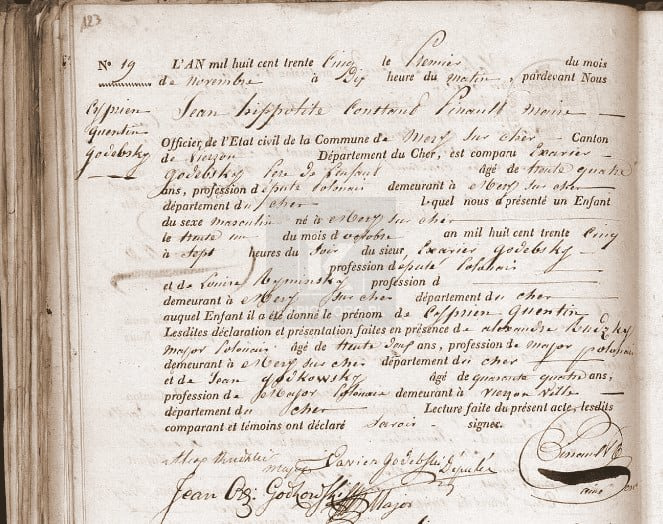 123
N° 19 L'AN mil huit cent trente Cinq le Premier du mois
de novembre à Dix heure du matin, pardevant Nous
Cyprien Quentin Godebsky
Jean hippolite Constant Pinault maire
Officier de l'Etat civil de la Commune de Mery sur cher Canton
de Vierzon Département du Cher, est comparu Exavier
Godebsky Pere de l'enfant âgé de trente quatre
ans, profession député polonais demeurant à Mery sur cher
département du cher lequel nous a présenté un Enfant
du sexe masculin né à Mery sur cher
le trente un du mois d'octobre an mil huit cent trente Cinq
à Sept heures du Soir du sieur Exavier Godebsky
profession député Polonais
et de Louise Ryminsky profession d
demeurant à Mery sur cher département du cher
auquel Enfant il a été donné le prénom de Cyprien Quentin
Lesdites déclaration et présentation faites en présence de alexandre
major Polonais âgé de trente ans, profession de major polonais
demeurant à Mery sur cher département du cher
et de Jean Godkowsky âgé de quarante quatre ans,
profession de Major Polonais demeurant à Vierzon Ville
département du cher Lecture faite du présent acte, lesdits
comparant et témoins ont déclaré Savoir signer.
major Xavier Godebski député
Pinault
maire
Jean Godkowski
Major